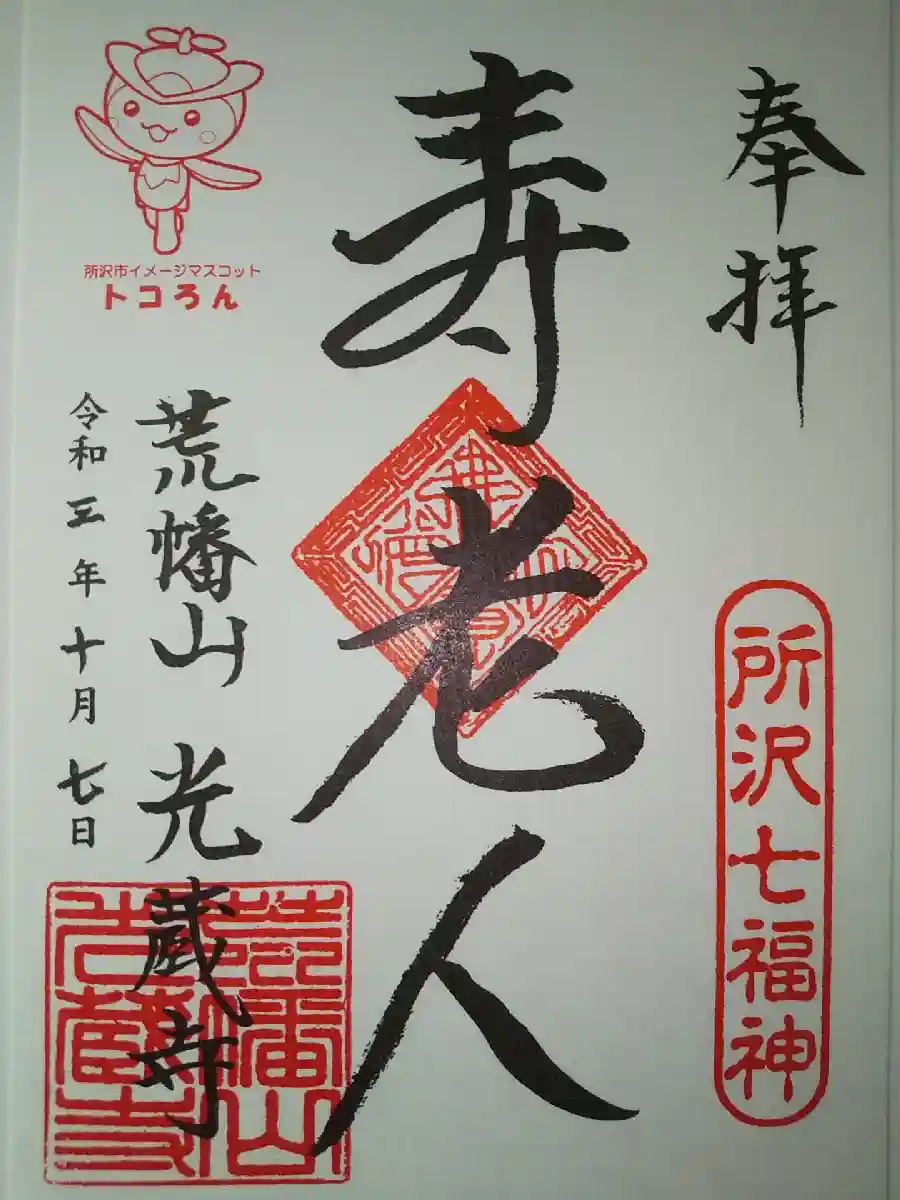 奉拝
所沢七福神
寿老人
荒幡山 光蔵寺
荒幡山
光蔵寺
令和三年十月七日
所沢市イメージマスコット
トコろん